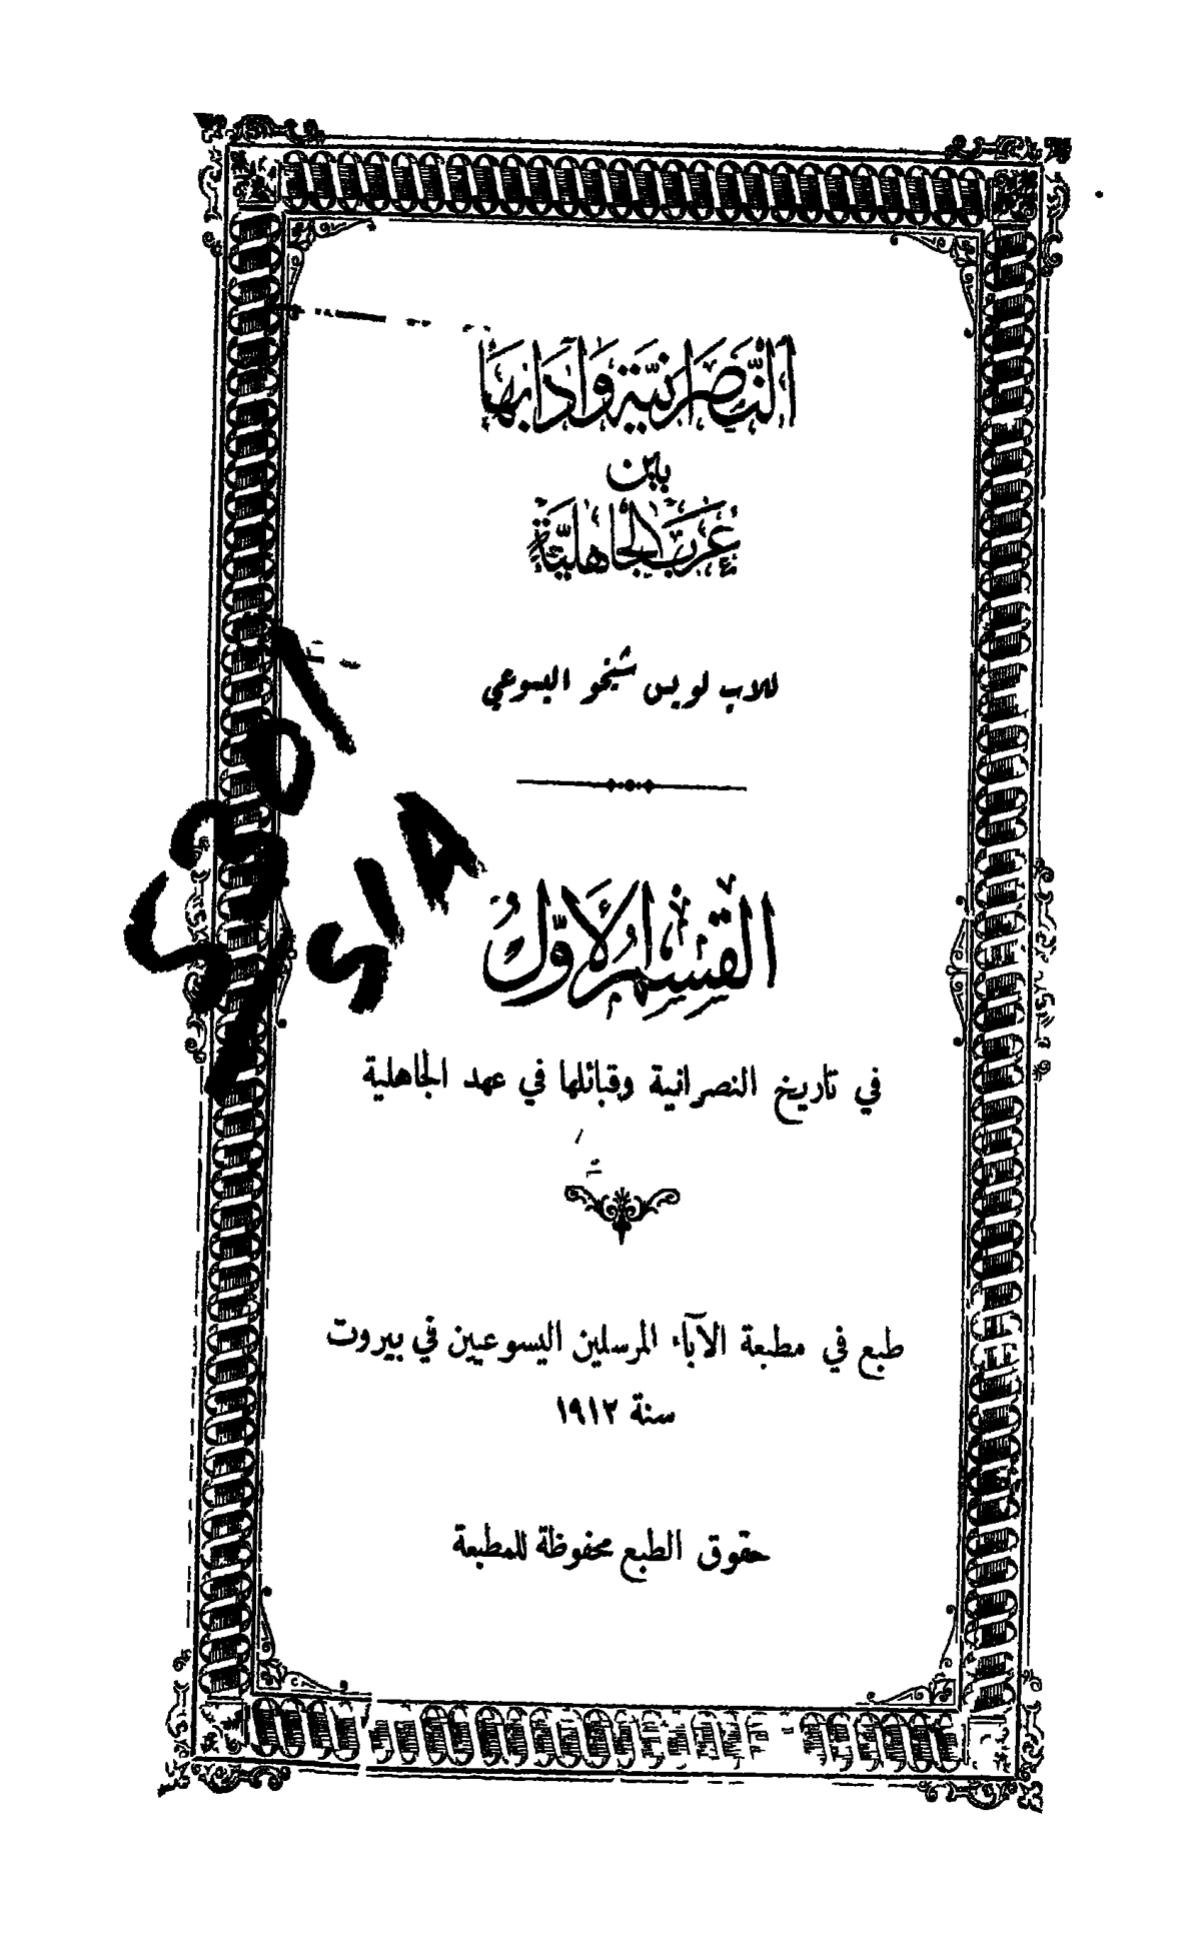 النَّصْرَانِيَّة وَآدَابُهَا
بين
عَرَب الجَاهِليَّة
للاب لويس شيخو اليسوعي
القِسْمُ الأَوَّلُ
في تاريخ النصرانية وقبائلها في عهد الجاهلية
طبع في مطبعة الآباء المرسلين اليسوعيين في بيروت
سنة ١٩١٢
حقوق الطبع محفوظة للمطبعة